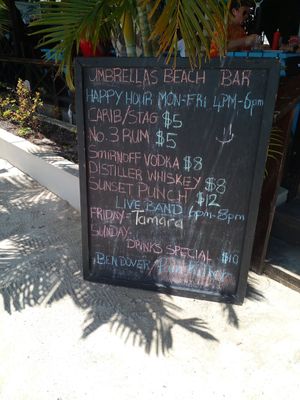 UMBRELLAS BEACH BAR
HAPPY HOUR MON-FRI 4PM-6pm
CARIB/STAG $5
No. 3 RUM $5
SMIRNOFF VODKA $8
DISTILLER WHISKEY $8
SUNSET PUNCH $12
LIVE BAND 6pm-8pm
FRIDAY- Tamara
SUNDAY:
DRINKS SPECIAL $10
BENDOVER/